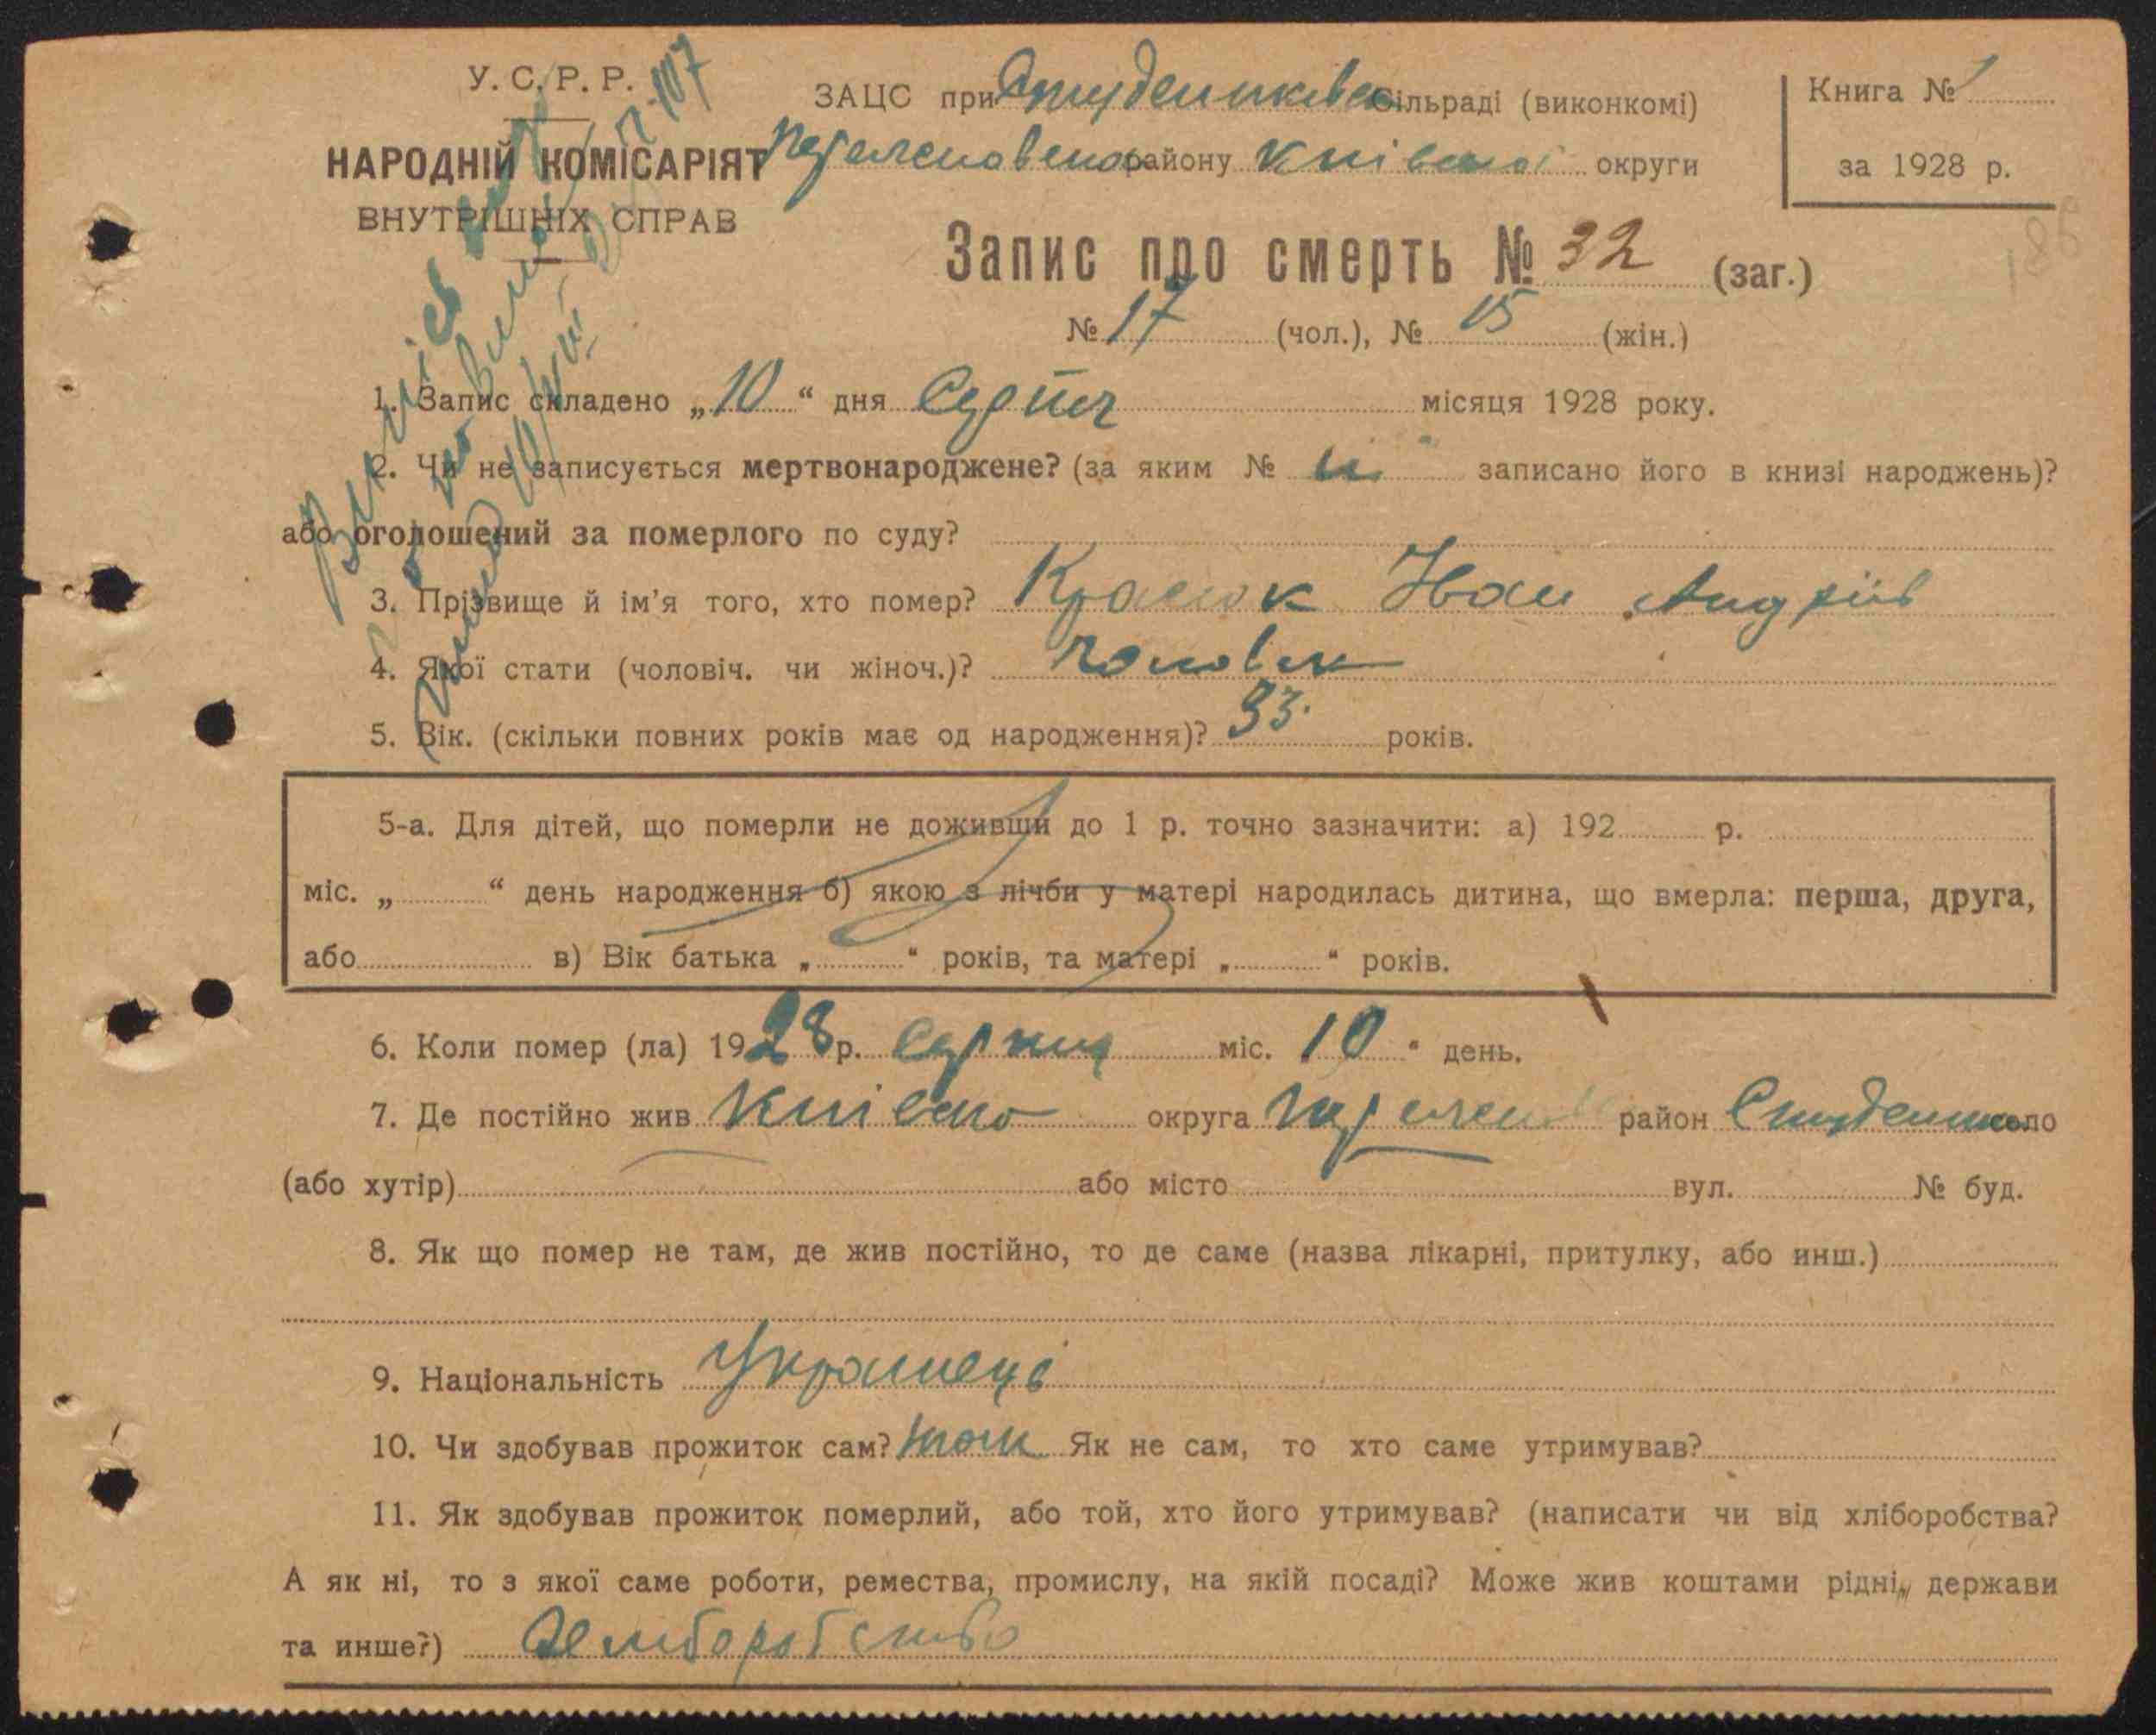 У.С.Р.Р.
НАРОДНІЙ КОМІСАРІЯТ
ВНУТРІШНІХ СПРАВ
ЗАЦС при Студениківск сільраді (виконкомі)
району Київської округи
Книга № 1
за 1928 р.
Запис про смерть № 32 (заг.)
№ 17 (чол.), № 15 (жін.)
1. Запис складено „10“ дня Серпня місяця 1928 року.
2. Чи не записується мертвонароджене? (за яким № записано його в книзі народжень)?
або оголошений за померлого по суду?
3. Прізвище й ім'я того, хто помер? Красюк Іван Андріїв
4. Якої стати (чоловіч. чи жіноч.)? Чоловік
5. Вік. (скільки повних років має од народження)? 33. років.
5-а. Для дітей, що померли не доживши до 1 р. точно зазначити: а) 192 р.
міс. „ “ день народження б) якою з лічби у матері народилась дитина, що вмерла: перша, друга,
або в) Вік батька „ “ років, та матері „ “ років.
6. Коли помер (ла) 1928 р. Серпня міс. 10 “ день.
7. Де постійно жив Київсько округа район Студеник село
(або хутір) або місто вул. № буд.
8. Як що помер не там, де жив постійно, то де саме (назва лікарні, притулку, або инш.)
9. Національність Українець
10. Чи здобував прожиток сам? так Як не сам, то хто саме утримував?
11. Як здобував прожиток померлий, або той, хто його утримував? (написати чи від хліборобства?
А як ні, то з якої саме роботи, ремества, промислу, на якій посаді? Може жив коштами рідні, держави
та инше?) Хліборобство